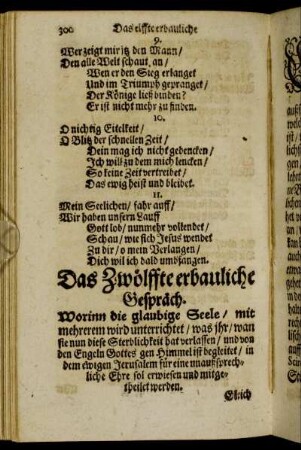 300 Das eilffte erbauliche
9.
Wer zeigt mir itz den Mann/
Den alle Welt schaut, an/
Wen er den Sieg erlanget
Und im Triumph gepranget/
Der Könige ließ binden?
Er ist nicht mehr zu finden.
10.
O nichtig Eitelkeit/
O Blitz der schnellen Zeit/
Dein mag ich nicht gedencken/
Ich will zu dem mich lencken/
So keine Zeit vertreibet/
Das ewig heist und bleibet.
11.
Mein Seelichen/ fahr auff/
Wir haben unsern Lauff
Gott lob/ nunmehr vollendet/
Schau/ wie sich Jesus wendet
Zu dir/ o mein Verlangen/
Dich wil ich bald umbfangen.
Das Zwölffte erbauliche
Gespräch.
Worinn die glaubige Seele/ mit
mehrerem wird unterrichtet/ was ihr/ wan
sie nun diese Sterblichkeit hat verlassen/ und von
den Engeln Gottes gen Himmel ist begleitet/ in
dem ewigen Jerusalem für eine unaußsprech-
liche Ehre sol erwiesen und mitge-
theilet werden.